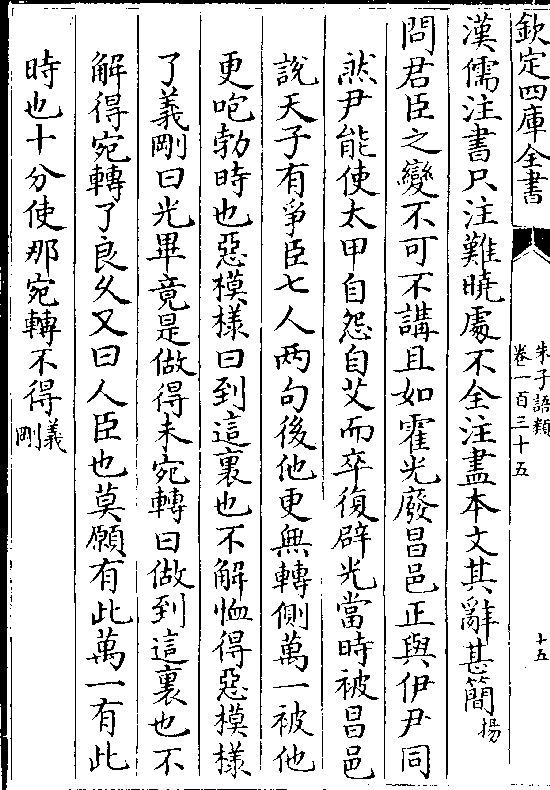 欽定四庫全書
朱子語類
卷一百三十五
十五
漢儒注書只注難曉處不全注盡本文其辭甚簡揚
問君臣之變不可不講且如霍光廢昌邑正與伊尹同
然尹能使太甲自怨自艾而卒復辟光當時被昌邑
說天子有爭臣七人两句後他更無轉側萬一被他
更咆勃時也惡模様曰到這裏也不解恤得惡模様
了義剛曰光畢竟是做得未宛轉曰做到這裏也不
解得宛轉了良久又曰人臣也莫願有此萬一有此
時也十分使那宛轉不得義剛